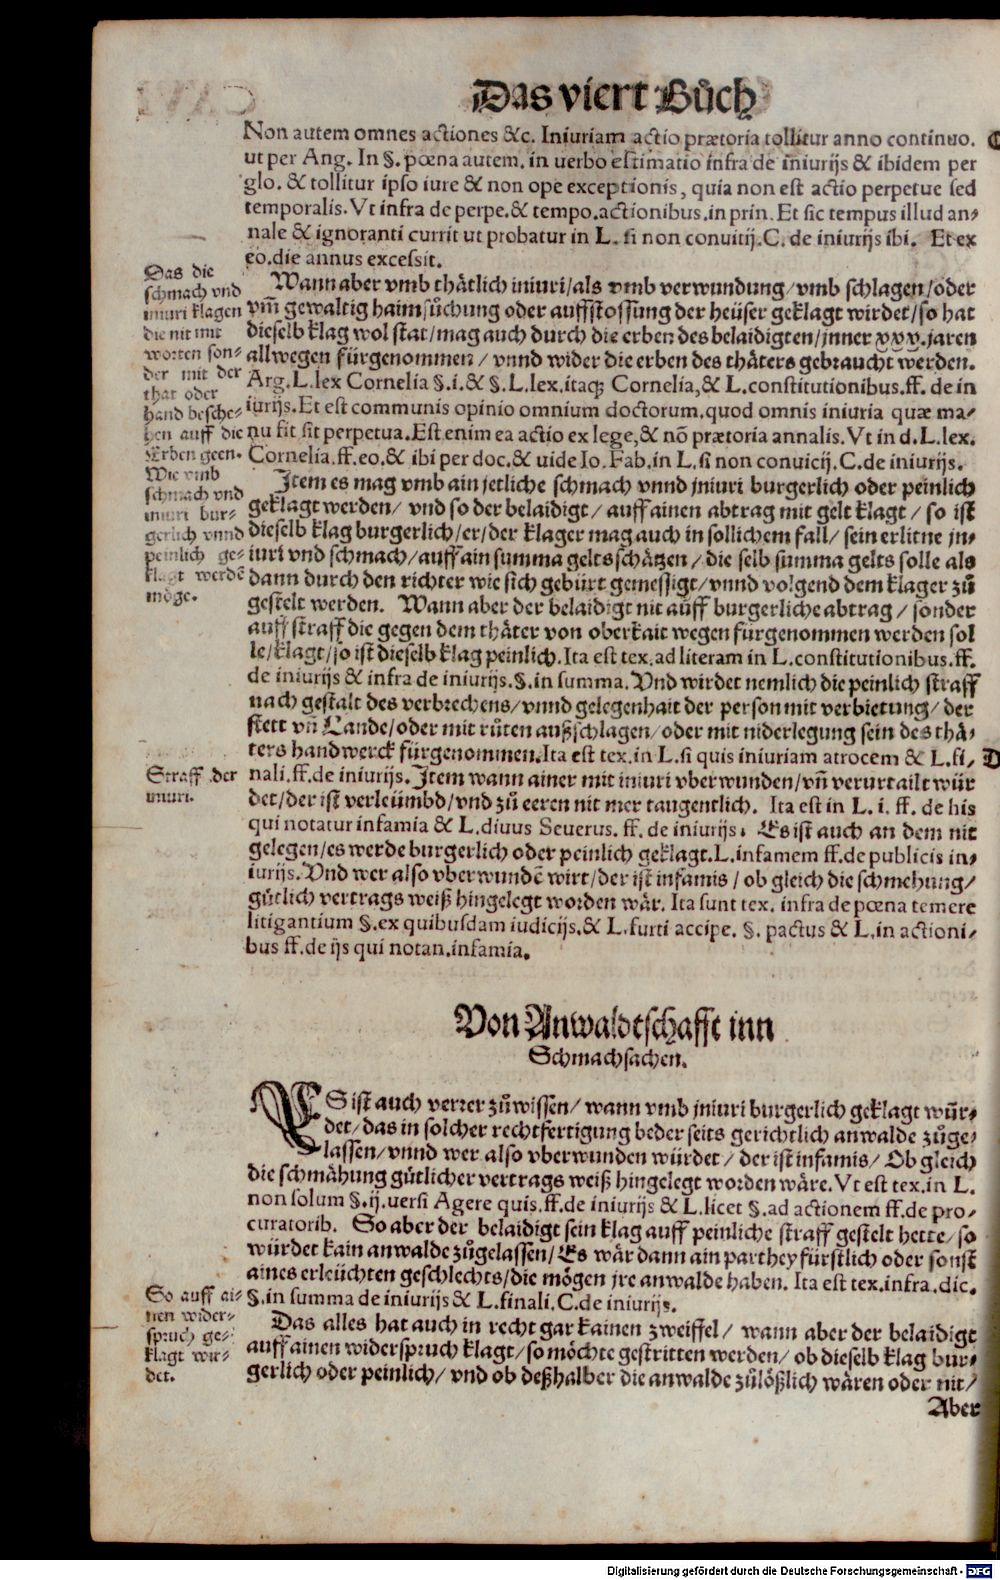 Das viert Bůch
Non autem omnes actiones &c. Iniuriam actio prætoria tollitur anno continuo.
ut per Ang. In §. pœna autem. in uerbo estimatio infra de iniurijs & ibidem per
glo. & tollitur ipso iure & non ope exceptionis, quia non est actio perpetue sed
temporalis. Vt infra de perpe. & tempo. actionibus. in prin. Et sic tempus illud an-
nale & ignoranti currit ut probatur in L. si non conuitij. C. de iniurijs ibi. Et ex
eo. die annus excessit.
Das die
schmach vnd
iniuri klagen
die nit mit
worten son-
der mit der
that oder
hand besche-
hen auff die
Erben geen.
Wann aber vmb thätlich iniuri/als vmb verwundung/vmb schlagen/oder
vm̃ gewaltig haimsůchung oder auffstossung der heüser geklagt wirdet/so hat
dieselb klag wol stat/mag auch durch die erben des belaidigten/inner xxx. jaren
allwegen fürgenommen/ vnnd wider die erben des thäters gebraucht werden.
Arg. L. lex Cornelia §. i. & §. L. lex. itaq; Cornelia, & L. constitutionibus. ff. de in
iurijs. Et est communis opinio omnium doctorum, quod omnis iniuria quæ ma-
nu fit sit perpetua. Est enim ea actio ex lege, & nõ prætoria annalis. Vt in d. L. lex.
Cornelia. ff. eo. & ibi per doc. & uide Io. Fab. in L. si non conuicij. C. de iniurijs.
Wie vmb
schmach vnd
iniuri bur-
gerlich vnnd
peinlich ge-
klagt werdẽ
möge.
Item es mag vmb ain jetliche schmach vnnd jniuri burgerlich oder peinlich
geklagt werden/ vnd so der belaidigt/ auff ainen abtrag mit gelt klagt/ so ist
dieselb klag burgerlich/er/der klager mag auch in sollichem fall/ sein erlitne jn-
iuri vnd schmach/auff ain summa gelts schätzen/ die selb summa gelts solle als
dann durch den richter wie sich gebürt gemessigt/vnnd volgend dem klager zů
gestelt werden. Wann aber der belaidigt nit auff burgerliche abtrag/ sonder
auff straff die gegen dem thäter von oberkait wegen fürgenommen werden sol
le/klagt/so ist dieselb klag peinlich. Ita est tex. ad literam in L. constitutionibus. ff.
de iniurijs & infra de iniurijs. §. in summa. Vnd wirdet nemlich die peinlich straff
nach gestalt des verbrechens/vnnd gelegenhait der person mit verbietung/ der
stett vñ Lande/oder mit růten außschlagen/oder mit niderlegung sein des thä-
ters handwerck fürgenommen. Ita est tex. in L. si quis iniuriam atrocem & L. fi-
Straff der
iniuri.
nali. ff. de iniurijs. Item wann ainer mit iniuri vberwunden/vñ verurtailt wür
det/der ist verleümbd/vnd zů eeren nit mer taugentlich. Ita est in L. i. ff. de his
qui notatur infamia & L. diuus Seuerus. ff. de iniurijs. Es ist auch an dem nit
gelegen/es werde burgerlich oder peinlich geklagt. L. infamem ff. de publicis in-
iurijs. Vnd wer also vberwundẽ wirt/der ist infamis/ ob gleich die schmehung/
gůtlich vertrags weiß hingelegt worden wär. Ita sunt tex. infra de pœna temere
litigantium §. ex quibusdam iudicijs. & L. furti accipe. §. pactus & L. in actioni-
bus ff. de ijs qui notan. infamia.
Von Anwaldtschafft inn
Schmachsachen.
ES ist auch verrer zůwissen/ wann vmb jniuri burgerlich geklagt wür-
det/das in solcher rechtfertigung beder seits gerichtlich anwalde zůge-
lassen/vnnd wer also vberwunden würdet/ der ist infamis/ Ob gleich
die schmähung gůtlicher vertrags weiß hingelegt worden wäre. Vt est tex. in L.
non solum §. ij. uersi Agere quis. ff. de iniurijs & L. licet §. ad actionem ff. de pro-
curatorib. So aber der belaidigt sein klag auff peinliche straff gestelt hette/so
würdet kain anwalde zůgelassen/Es wär dann ain parthey fürstlich oder sonst
aines erleüchten geschlechts/die mögen jre anwalde haben. Ita est tex. infra. dic.
§. in summa de iniurijs & L. finali. C. de iniurijs.
So auff ai-
nen wider-
spruch ge-
klagt wir-
det.
Das alles hat auch in recht gar kainen zweiffel/ wann aber der belaidigt
auff ainen widerspruch klagt/so möchte gestritten werden/ ob dieselb klag bur-
gerlich oder peinlich/ vnd ob deßhalber die anwalde zůlößlich wären oder nit/
Aber
Digitalisierung gefördert durch die Deutsche Forschungsgemeinschaft - DFG